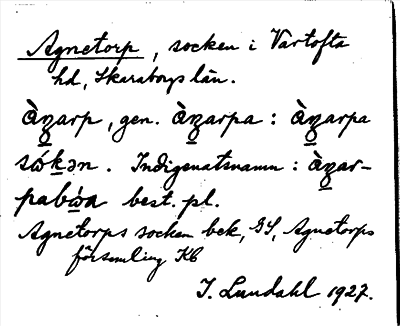 Agnetorp, socken i Vartofta
hd, Skaraborgs län.
àn̠arp, gen. àn̠arpa : àn̠arpa
sώk̠ən. Indigenatsnamn : àn̠ar-
pabω̠a best. pl.
Agnetorps socken bek, GS, Agnetorps
församling KB
I. Lundahl 1927.